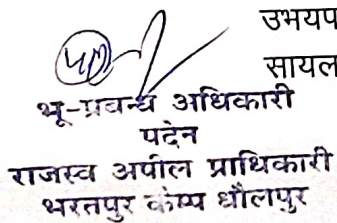 उभयप
सायल
भू-प्रबन्ध अधिकारी
पदेन
राजस्व अपील प्राधिकारी
भरतपुर कैम्प धौलपुर